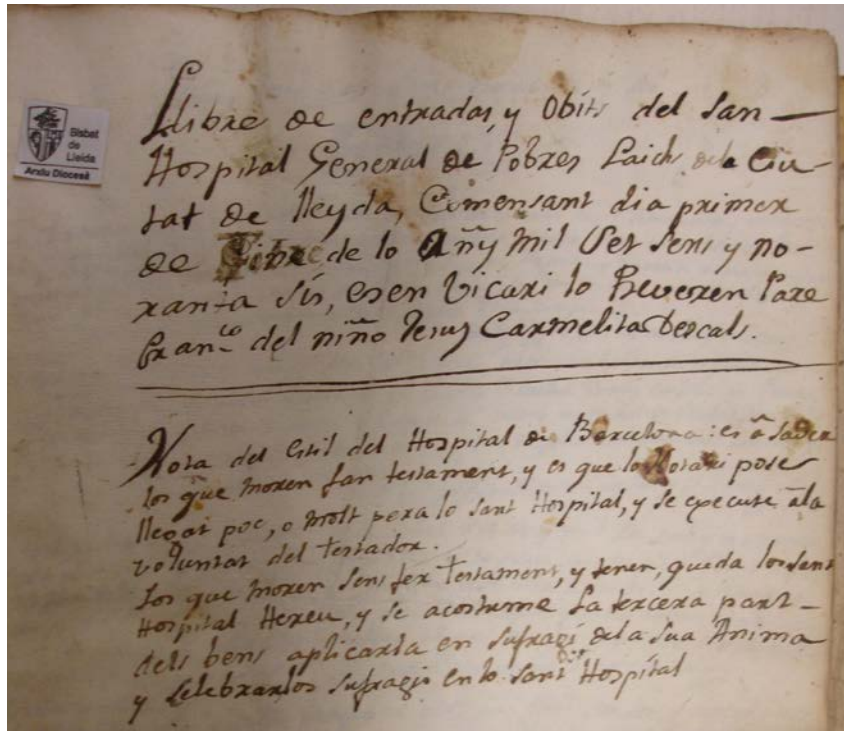 Bisbat
de
Lleida
Arxiu Diocesà
Llibre de entradas, y Obits del San
Hospital General de Pobres Laichs de la Ciu-
tat de lleyda, Comensant dia primer
de de lo Añy Mil Set Sens y no-
ranta sís, esen Vicari lo Reveren Pare
Fran.co del niño Jesus Carmelita Descals.
Nota del Estil del Hospital de Barcelona: es â saber
los que moren fan testament, y es que lo Notari pose
llegat poc, o molt pera lo Sant Hospital, y se execute â la
voluntat del testador.
Los que moren Sens fer Testament, y tenen, queda lo Sant
Hospital Hereu, y se acostume la tercera part
dels bens aplicarla en sufragi de la Sua Anima
y Selebrarlos sufragis en lo Sant Hospital